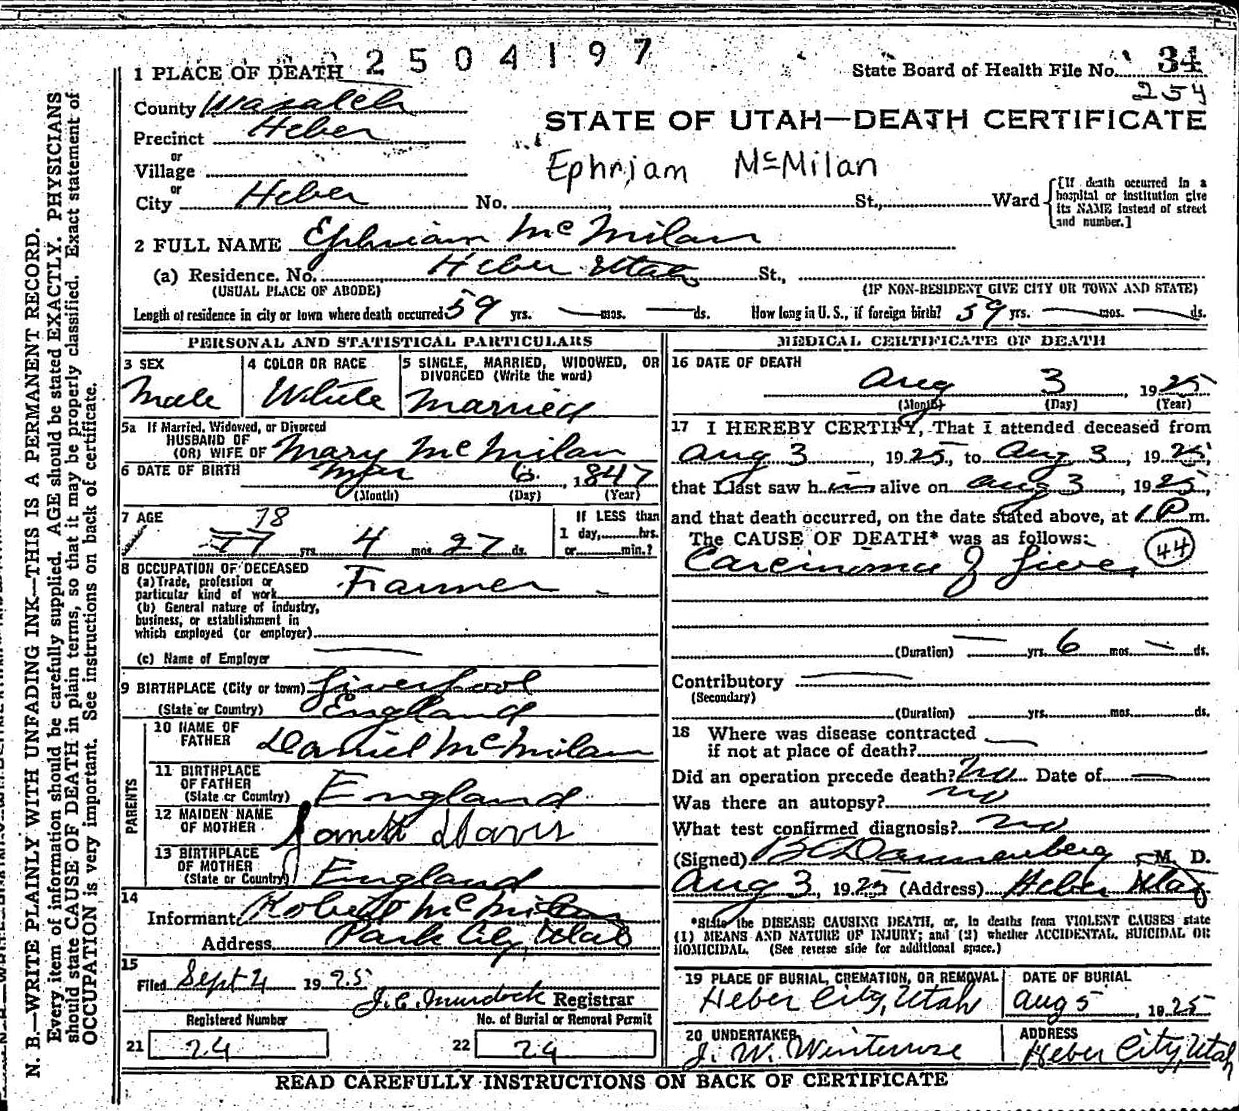 2504197
1 PLACE OF DEATH
State Board of Health File No. 34
254
County Wasatch
Precinct Heber
STATE OF UTAH—DEATH CERTIFICATE
or
Village
Ephriam McMilan
or
City Heber No. St., Ward
[If death occurred in a hospital or institution give its NAME instead of street and number.]
2 FULL NAME Ephriam McMilan
(a) Residence. No. Heber Utah St.,
(USUAL PLACE OF ABODE) (IF NON-RESIDENT GIVE CITY OR TOWN AND STATE)
Length of residence in city or town where death occurred 59 yrs. — mos. — ds. How long in U. S., if foreign birth? 59 yrs. — mos. — ds.
PERSONAL AND STATISTICAL PARTICULARS
3 SEX
Male
4 COLOR OR RACE
White
5 SINGLE, MARRIED, WIDOWED, OR
DIVORCED (Write the word)
Married
5a If Married, Widowed, or Divorced
HUSBAND OF
(OR) WIFE OF Mary McMilan
6 DATE OF BIRTH Mar 6, 1847
(Month) (Day) (Year)
7 AGE
78
77 yrs. 4 mos. 27 ds.
If LESS than
1 day, hrs.
or min.?
8 OCCUPATION OF DECEASED
(a) Trade, profession or
particular kind of work Farmer
(b) General nature of industry,
business, or establishment in
which employed (or employer)
(c) Name of Employer
9 BIRTHPLACE (City or town) Liverpool
(State or Country) England
PARENTS
10 NAME OF
FATHER Daniel McMilan
11 BIRTHPLACE
OF FATHER
(State or Country) England
12 MAIDEN NAME
OF MOTHER Davis
13 BIRTHPLACE
OF MOTHER
(State or Country) England
14
Informant Robert McMilan
Address Park City, Utah
15
Filed Sept 4 1925
J. C. Murdock Registrar
Registered Number No. of Burial or Removal Permit
21 24 22 24
MEDICAL CERTIFICATE OF DEATH
16 DATE OF DEATH
Aug 3 1925
(Month) (Day) (Year)
17 I HEREBY CERTIFY, That I attended deceased from
Aug 3, 1925, to Aug 3, 1925,
that I last saw him alive on Aug 3, 1925,
and that death occurred, on the date stated above, at 1 P m.
The CAUSE OF DEATH* was as follows:
Carcinoma of Liver 44
(Duration) — yrs. 6 mos. — ds.
Contributory
(Secondary)
(Duration) yrs. mos. ds.
18 Where was disease contracted
if not at place of death?
Did an operation precede death? No Date of —
Was there an autopsy? no
What test confirmed diagnosis? no
(Signed) Dannenberg M. D.
Aug 3, 1925 (Address) Heber Utah
*State the DISEASE CAUSING DEATH, or, in deaths from VIOLENT CAUSES state
(1) MEANS AND NATURE OF INJURY; and (2) whether ACCIDENTAL, SUICIDAL OR
HOMICIDAL. (See reverse side for additional space.)
19 PLACE OF BURIAL, CREMATION, OR REMOVAL
Heber City, Utah
DATE OF BURIAL
Aug 5, 1925
20 UNDERTAKER
J. W. Winterose
ADDRESS
Heber City, Utah
READ CAREFULLY INSTRUCTIONS ON BACK OF CERTIFICATE
N. B.—WRITE PLAINLY WITH UNFADING INK—THIS IS A PERMANENT RECORD.
Every item of information should be carefully supplied. AGE should be stated EXACTLY. PHYSICIANS
should state CAUSE OF DEATH in plain terms, so that it may be properly classified. Exact statement of
OCCUPATION is very important. See instructions on back of certificate.